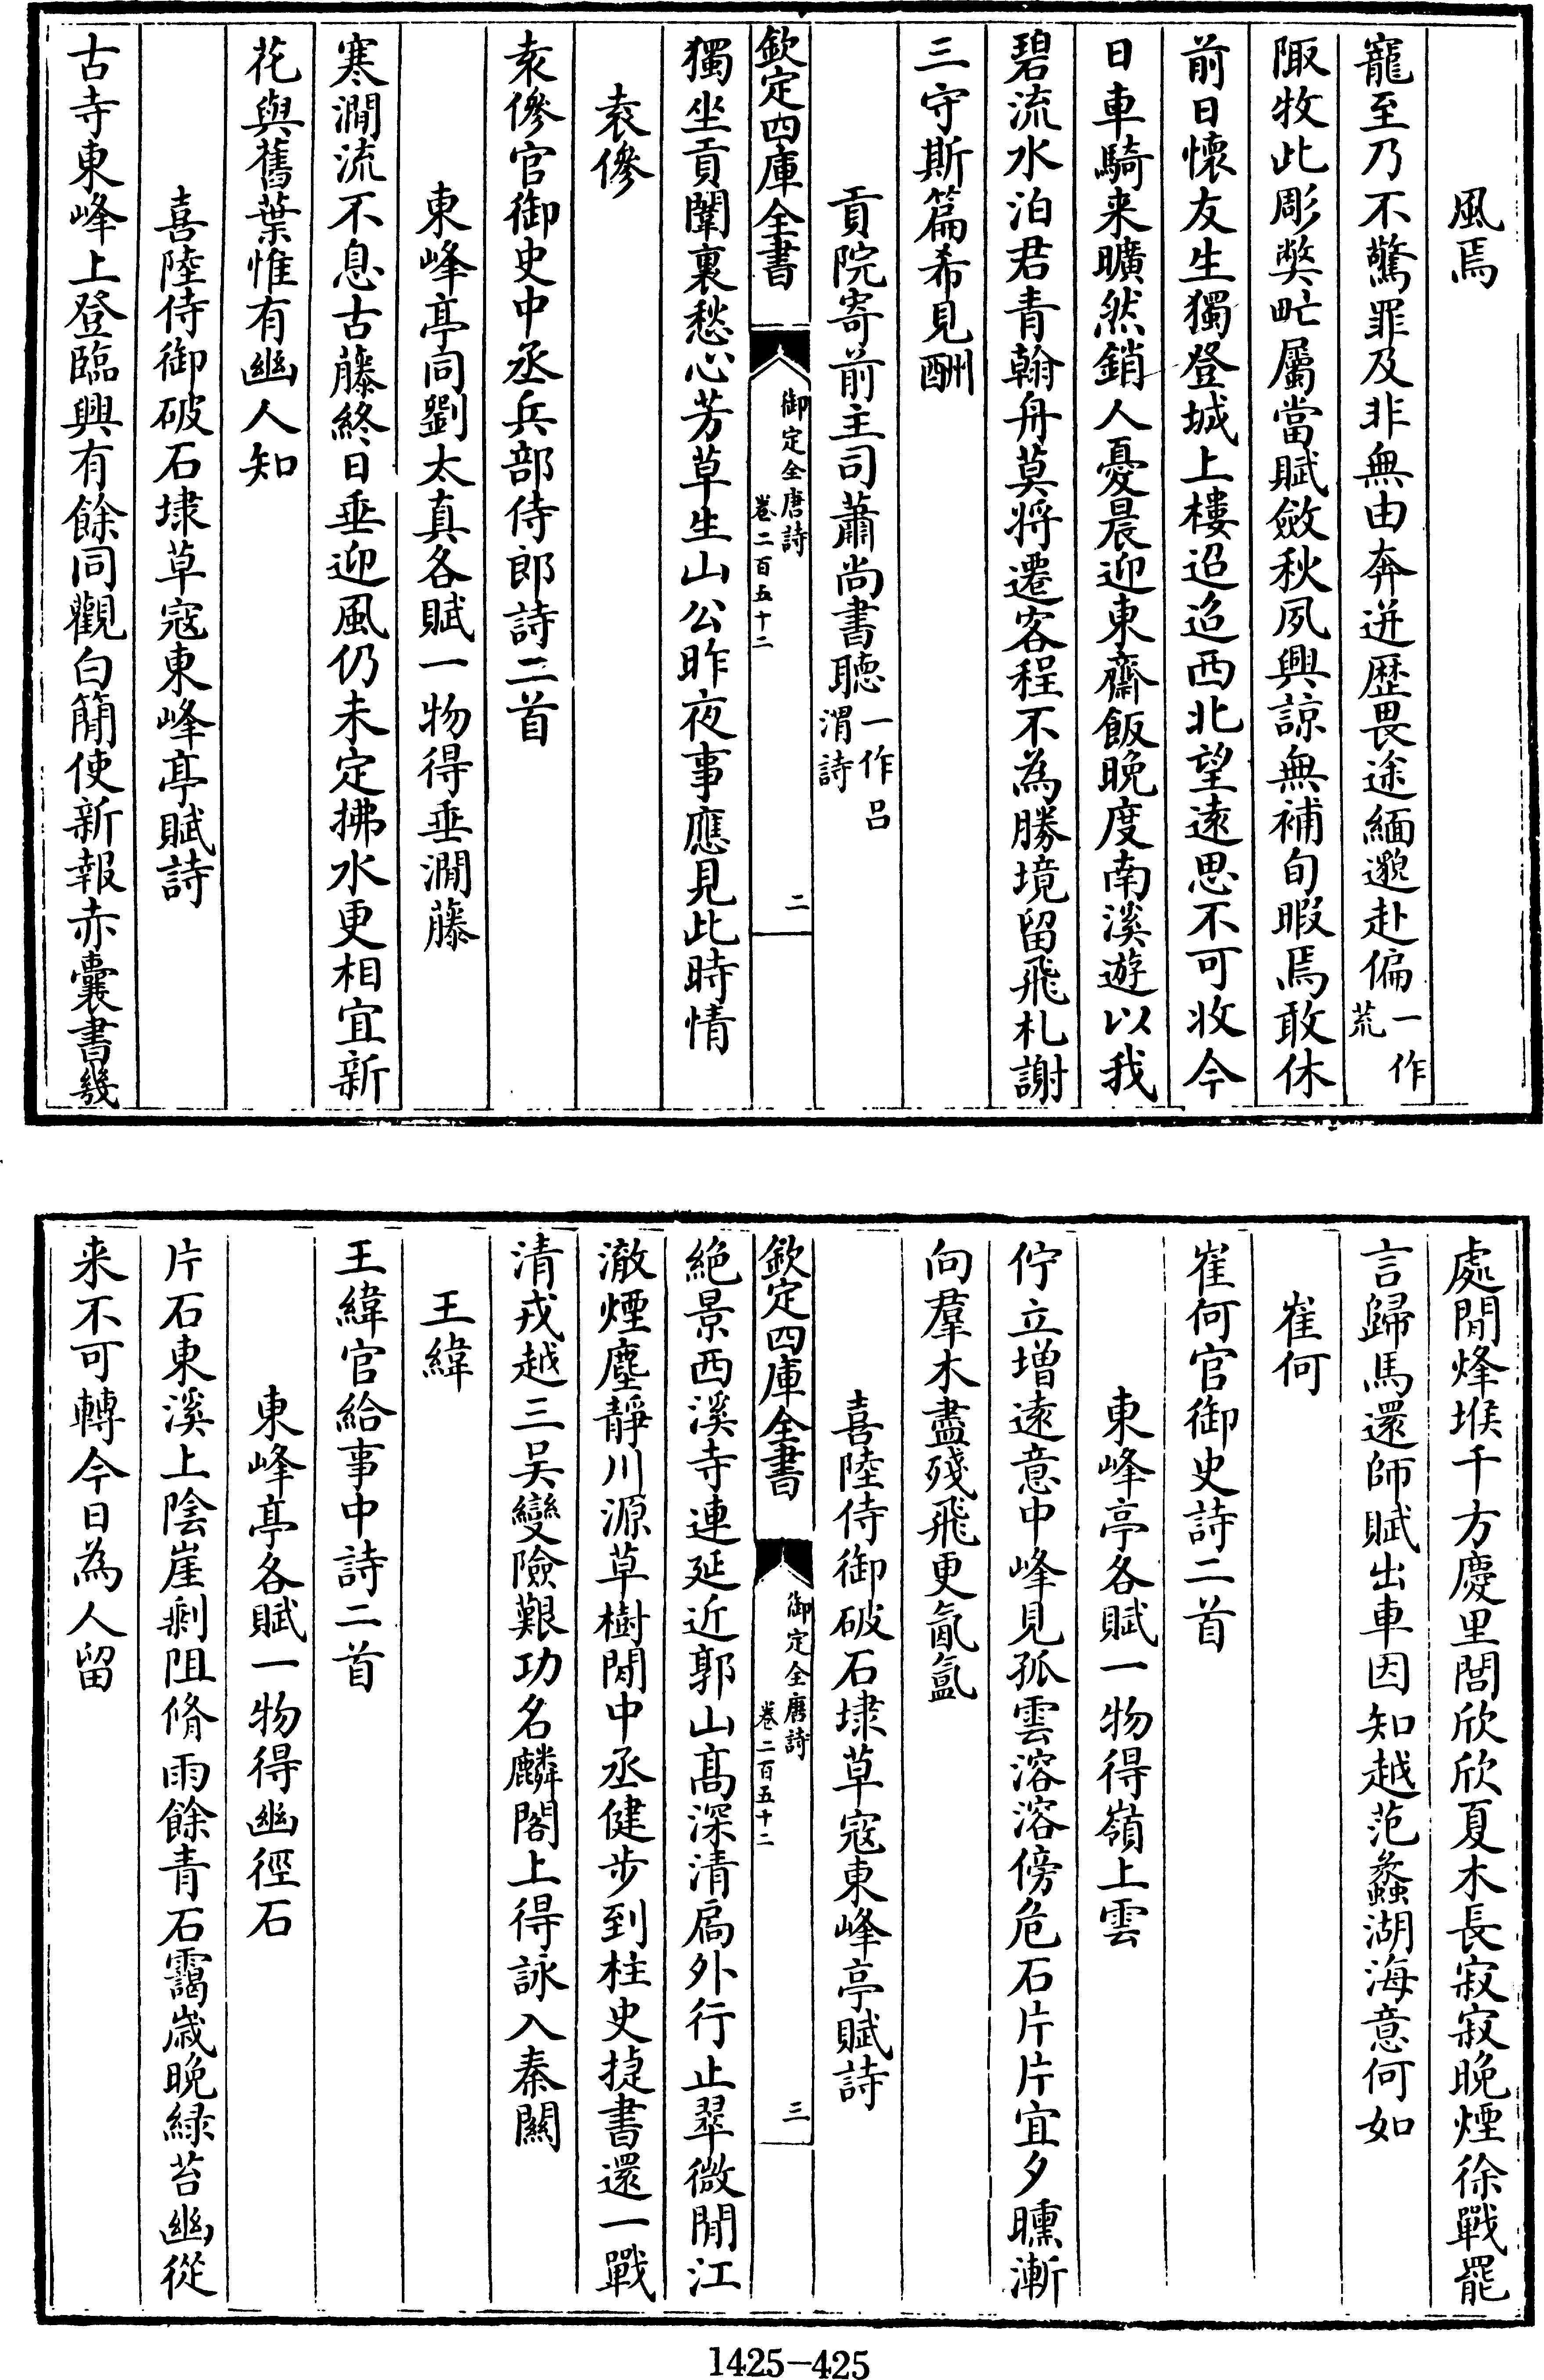 風焉
寵至乃不驚罪及非無由奔迸歴畏途緬邈赴偏一作荒
陬牧此彫弊甿屬當賦斂秋夙興諒無補旬暇焉敢休
前日懷友生獨登城上樓迢迢西北望逺思不可收今
日車騎来曠然銷人憂晨迎東齋飯晚度南溪遊以我
碧流水泊君青翰舟莫将遷客程不為勝境留飛札謝
三守斯篇希見酬
貢院寄前主司蕭尚書聽一作呂渭詩
欽定四庫全書
御定全唐詩
卷二百五十二
二
獨坐貢闈裏愁心芳草生山公昨夜事應見此時情
袁傪
袁傪官御史中丞兵部侍郎詩二首
東峰亭同劉太真各賦一物得垂澗藤
寒澗流不息古藤終日垂迎風仍未定拂水更相宜新
花與舊葉惟有幽人知
喜陸侍御破石埭草寇東峰亭賦詩
古寺東峰上登臨興有餘同觀白簡使新報赤囊書幾
處閒烽堠千方慶里閭欣欣夏木長寂寂晚煙徐戰罷
言歸馬還師賦出車因知越范蠡湖海意何如
崔何
崔何官御史詩二首
東峰亭各賦一物得嶺上雲
佇立增逺意中峰見孤雲溶溶傍危石片片宜夕曛漸
向羣木盡殘飛更氤氲
喜陸侍御破石埭草寇東峰亭賦詩
欽定四庫全書
御定全唐詩
卷二百五十二
三
絶景西溪寺連延近郭山髙深清扃外行止翠微閒江
澈煙塵靜川源草樹閒中丞健步到柱史捷書還一戰
清戎越三吴變險艱功名麟閣上得詠入秦關
王緯
王緯官給事中詩二首
東峰亭各賦一物得幽徑石
片石東溪上陰崖剰阻脩雨餘青石靄嵗晚緑苔幽從
来不可轉今日為人留
1425-425